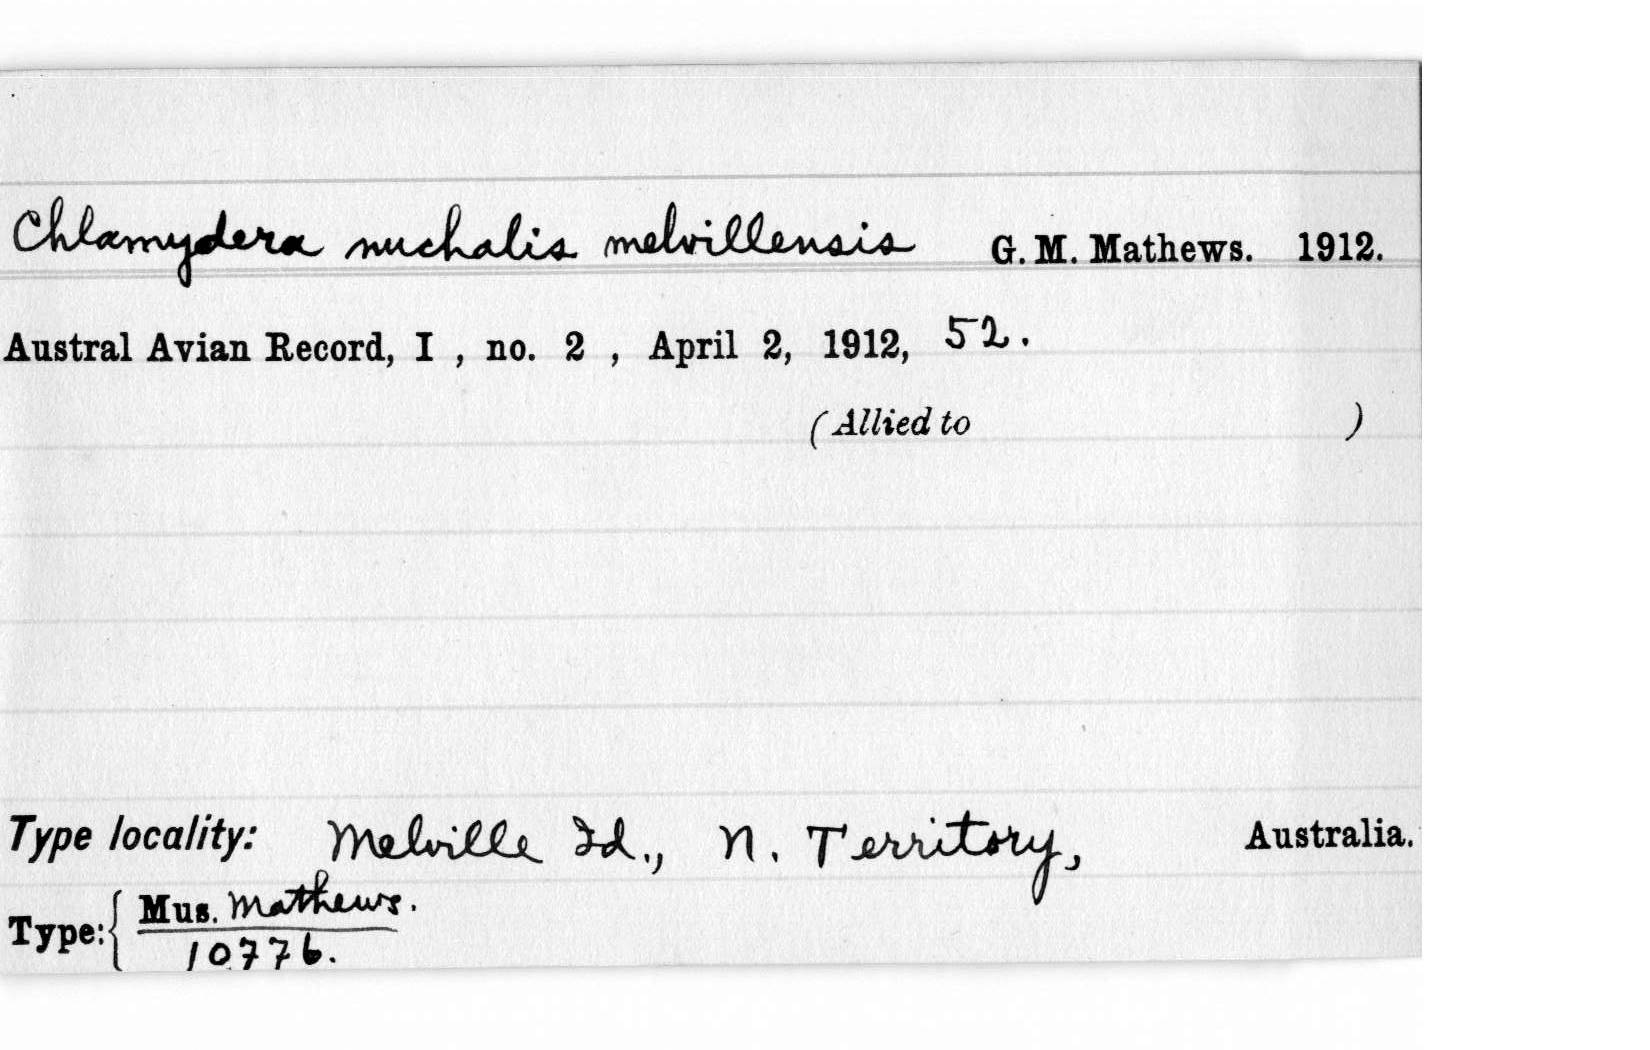 Chlamydera nuchalis melvillensis G. M. Mathews. 1912.
Austral Avian Record, I , no. 2 , April 2, 1912, 52.
(Allied to )
Type locality: Melville Id., N. Territory, Australia.
Type: { Mus. Mathews.
10776.